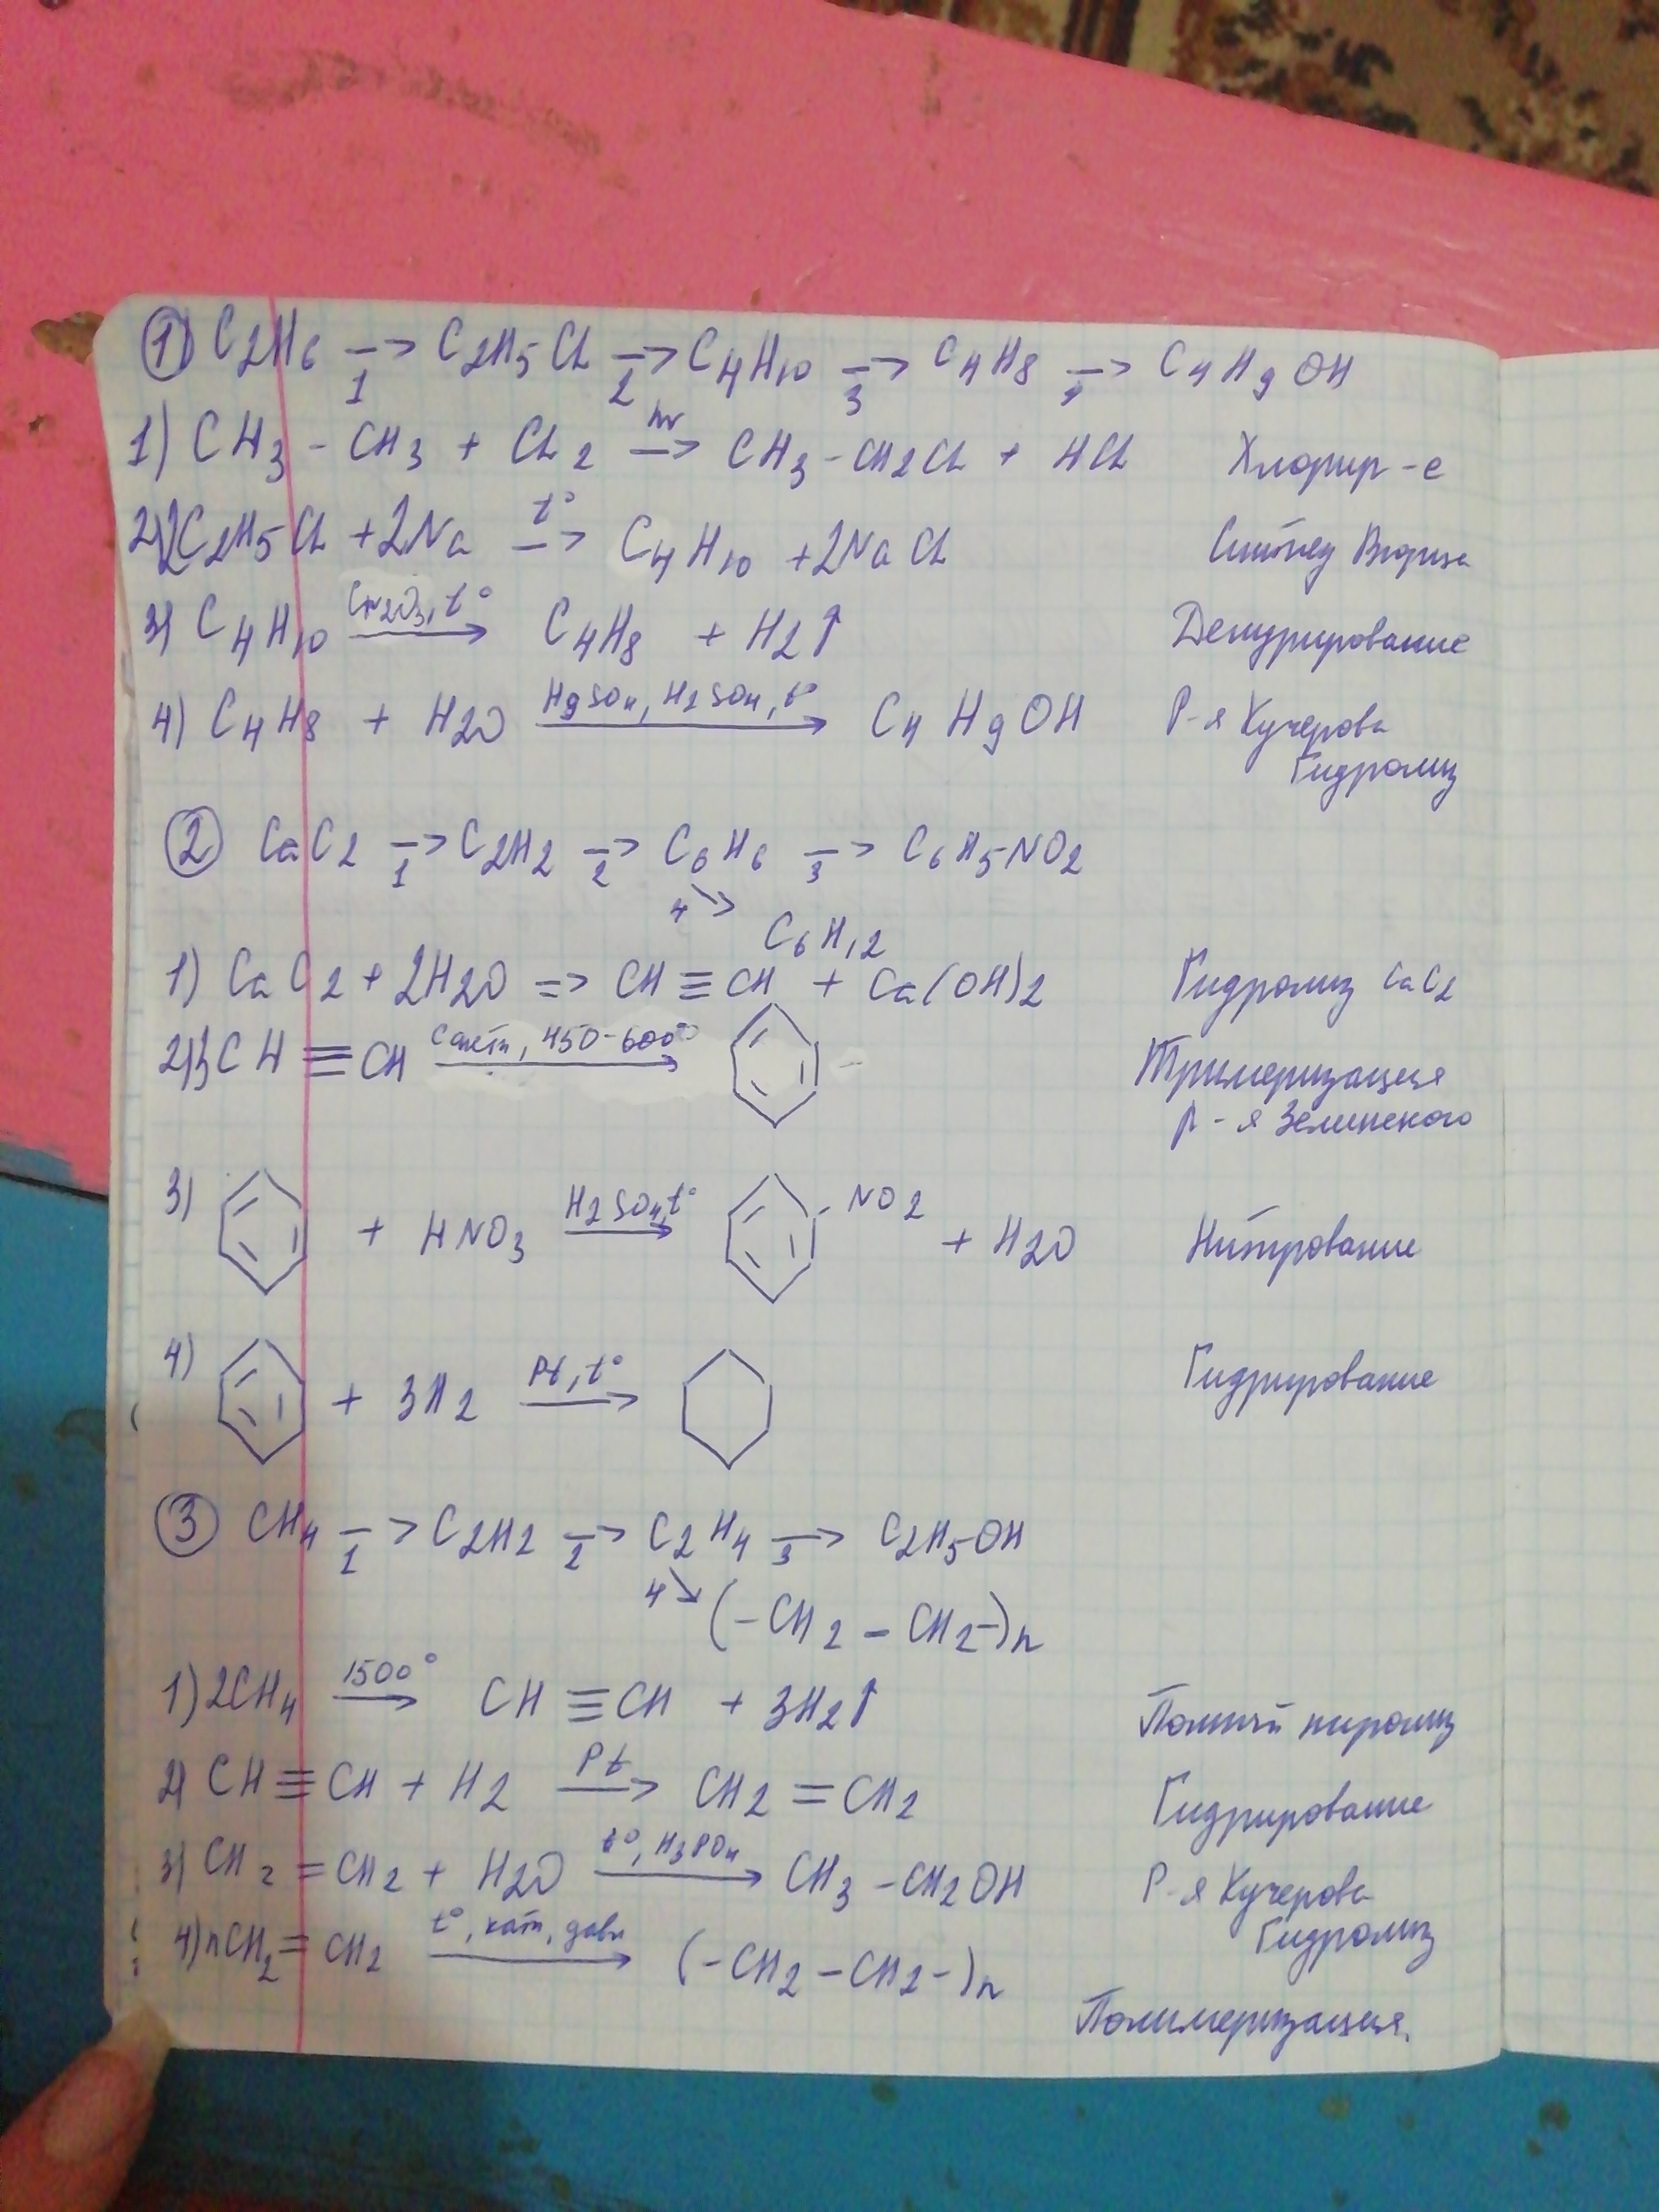 ① C2H6 →1 C2H5Cl →2 C4H10 →3 C4H8 →4 C4H9OH
1) CH3 - CH3 + Cl2 hν → CH3 - CH2Cl + HCl Хлорир-е
2) 2C2H5Cl + 2Na t° → C4H10 + 2NaCl Синтез Вюрца
3) C4H10 Cr2O3, t° → C4H8 + H2↑ Дегидрирование
4) C4H8 + H2O HgSO4, H2SO4, t° → C4H9OH Р-я Кучерова
Гидролиз
② CaC2 →1 C2H2 →2 C6H6 →3 C6H5NO2
4↘ C6H12
1) CaC2 + 2H2O => CH≡CH + Ca(OH)2 Гидролиз CaC2
2) 3CH≡CH Cакт, 450-600° → Тримеризация
р-я Зелинского
3) + HNO3 H2SO4, t° → NO2 + H2O Нитрование
4) + 3H2 Pt, t° → Гидрирование
③ CH4 →1 C2H2 →2 C2H4 →3 C2H5OH
4↘ (-CH2 - CH2-)n
1) 2CH4 1500° → CH≡CH + 3H2↑ Полный пиролиз
2) CH≡CH + H2 Pt → CH2=CH2 Гидрирование
3) CH2=CH2 + H2O t°, H3PO4 → CH3-CH2OH Р-я Кучерова
Гидролиз
4) nCH2=CH2 t°, кат, давл → (-CH2-CH2-)n
Полимеризация.